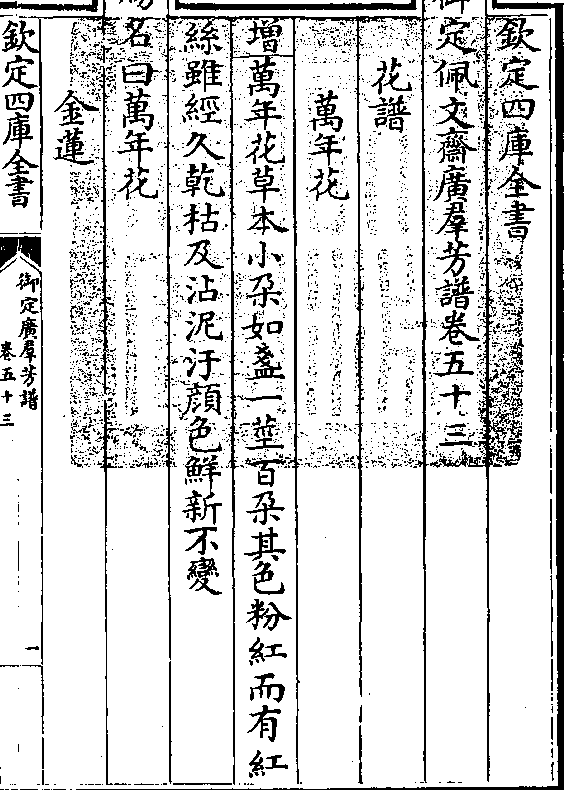 欽定四庫全書
御定佩文齋廣羣芳譜卷五十三
花譜
萬年花
增萬年花草本小朶如盞一莖百朶其色粉紅而有紅
絲雖經久乾枯及沾泥汙顔色鮮新不變
名曰萬年花
金蓮
欽定四庫全書
御定廣羣芳譜
卷五十三
一